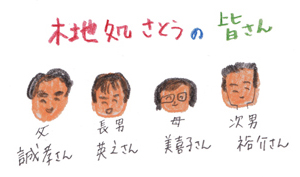 木地処 さとうの 皆さん
父 長男 母 次男
誠孝さん 英之さん 美喜子さん 裕介さん